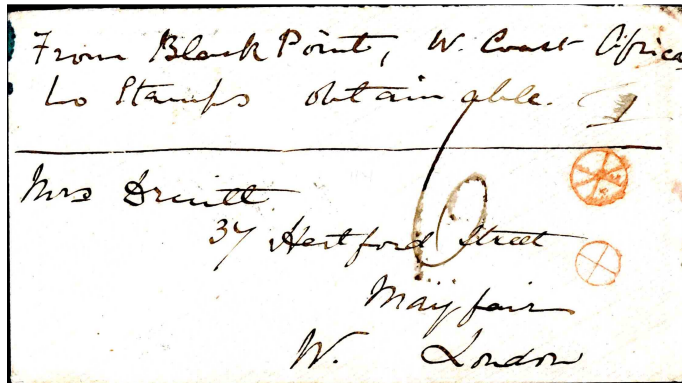 From Black Point, W. Coast Africa
No Stamps obtainable. 1
6
Mrs Druitt
37 Hertford Street
Mayfair
W. London